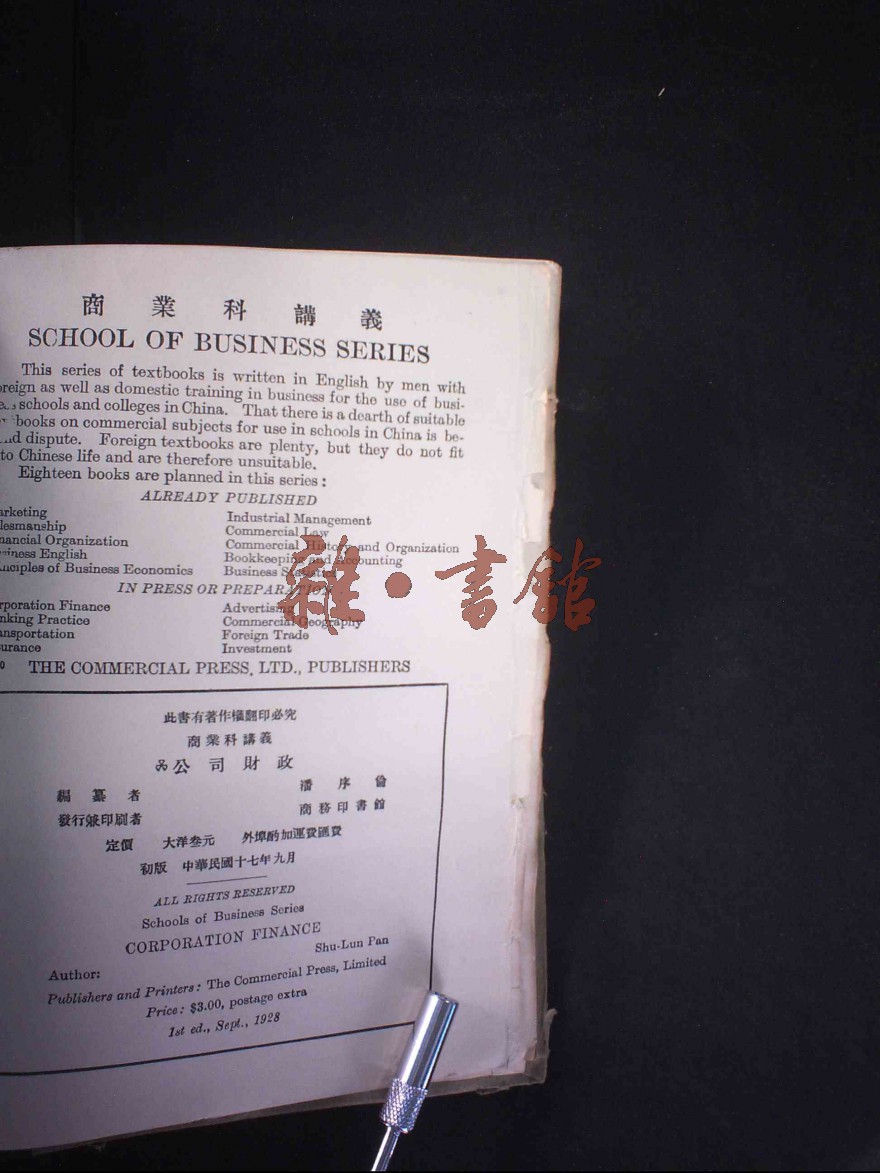 商業科講義
SCHOOL OF BUSINESS SERIES
This series of textbooks is written in English by men with
reign as well as domestic training in business for the use of busi-
schools and colleges in China. That there is a dearth of suitable
books on commercial subjects for use in schools in China is be-
d dispute. Foreign textbooks are plenty, but they do not fit
to Chinese life and are therefore unsuitable.
Eighteen books are planned in this series:
ALREADY PUBLISHED
arketing Industrial Management
lesmanship Commercial Law
nancial Organization Commercial History and Organization
siness English Bookkeeping and Accounting
nciples of Business Economics Business Statistics
IN PRESS OR PREPARATION
rporation Finance Advertising
nking Practice Commercial Geography
ansportation Foreign Trade
surance Investment
0 THE COMMERCIAL PRESS, LTD., PUBLISHERS
雜·書館
此書有著作權翻印必究
商業科講義
公司財政
編纂者 潘序倫
發行兼印刷者 商務印書館
定價 大洋叁元 外埠酌加運費匯費
初版 中華民國十七年九月
ALL RIGHTS RESERVED
Schools of Business Series
CORPORATION FINANCE
Author: Shu-Lun Pan
Publishers and Printers: The Commercial Press, Limited
Price: $3.00, postage extra
1st ed., Sept., 1928